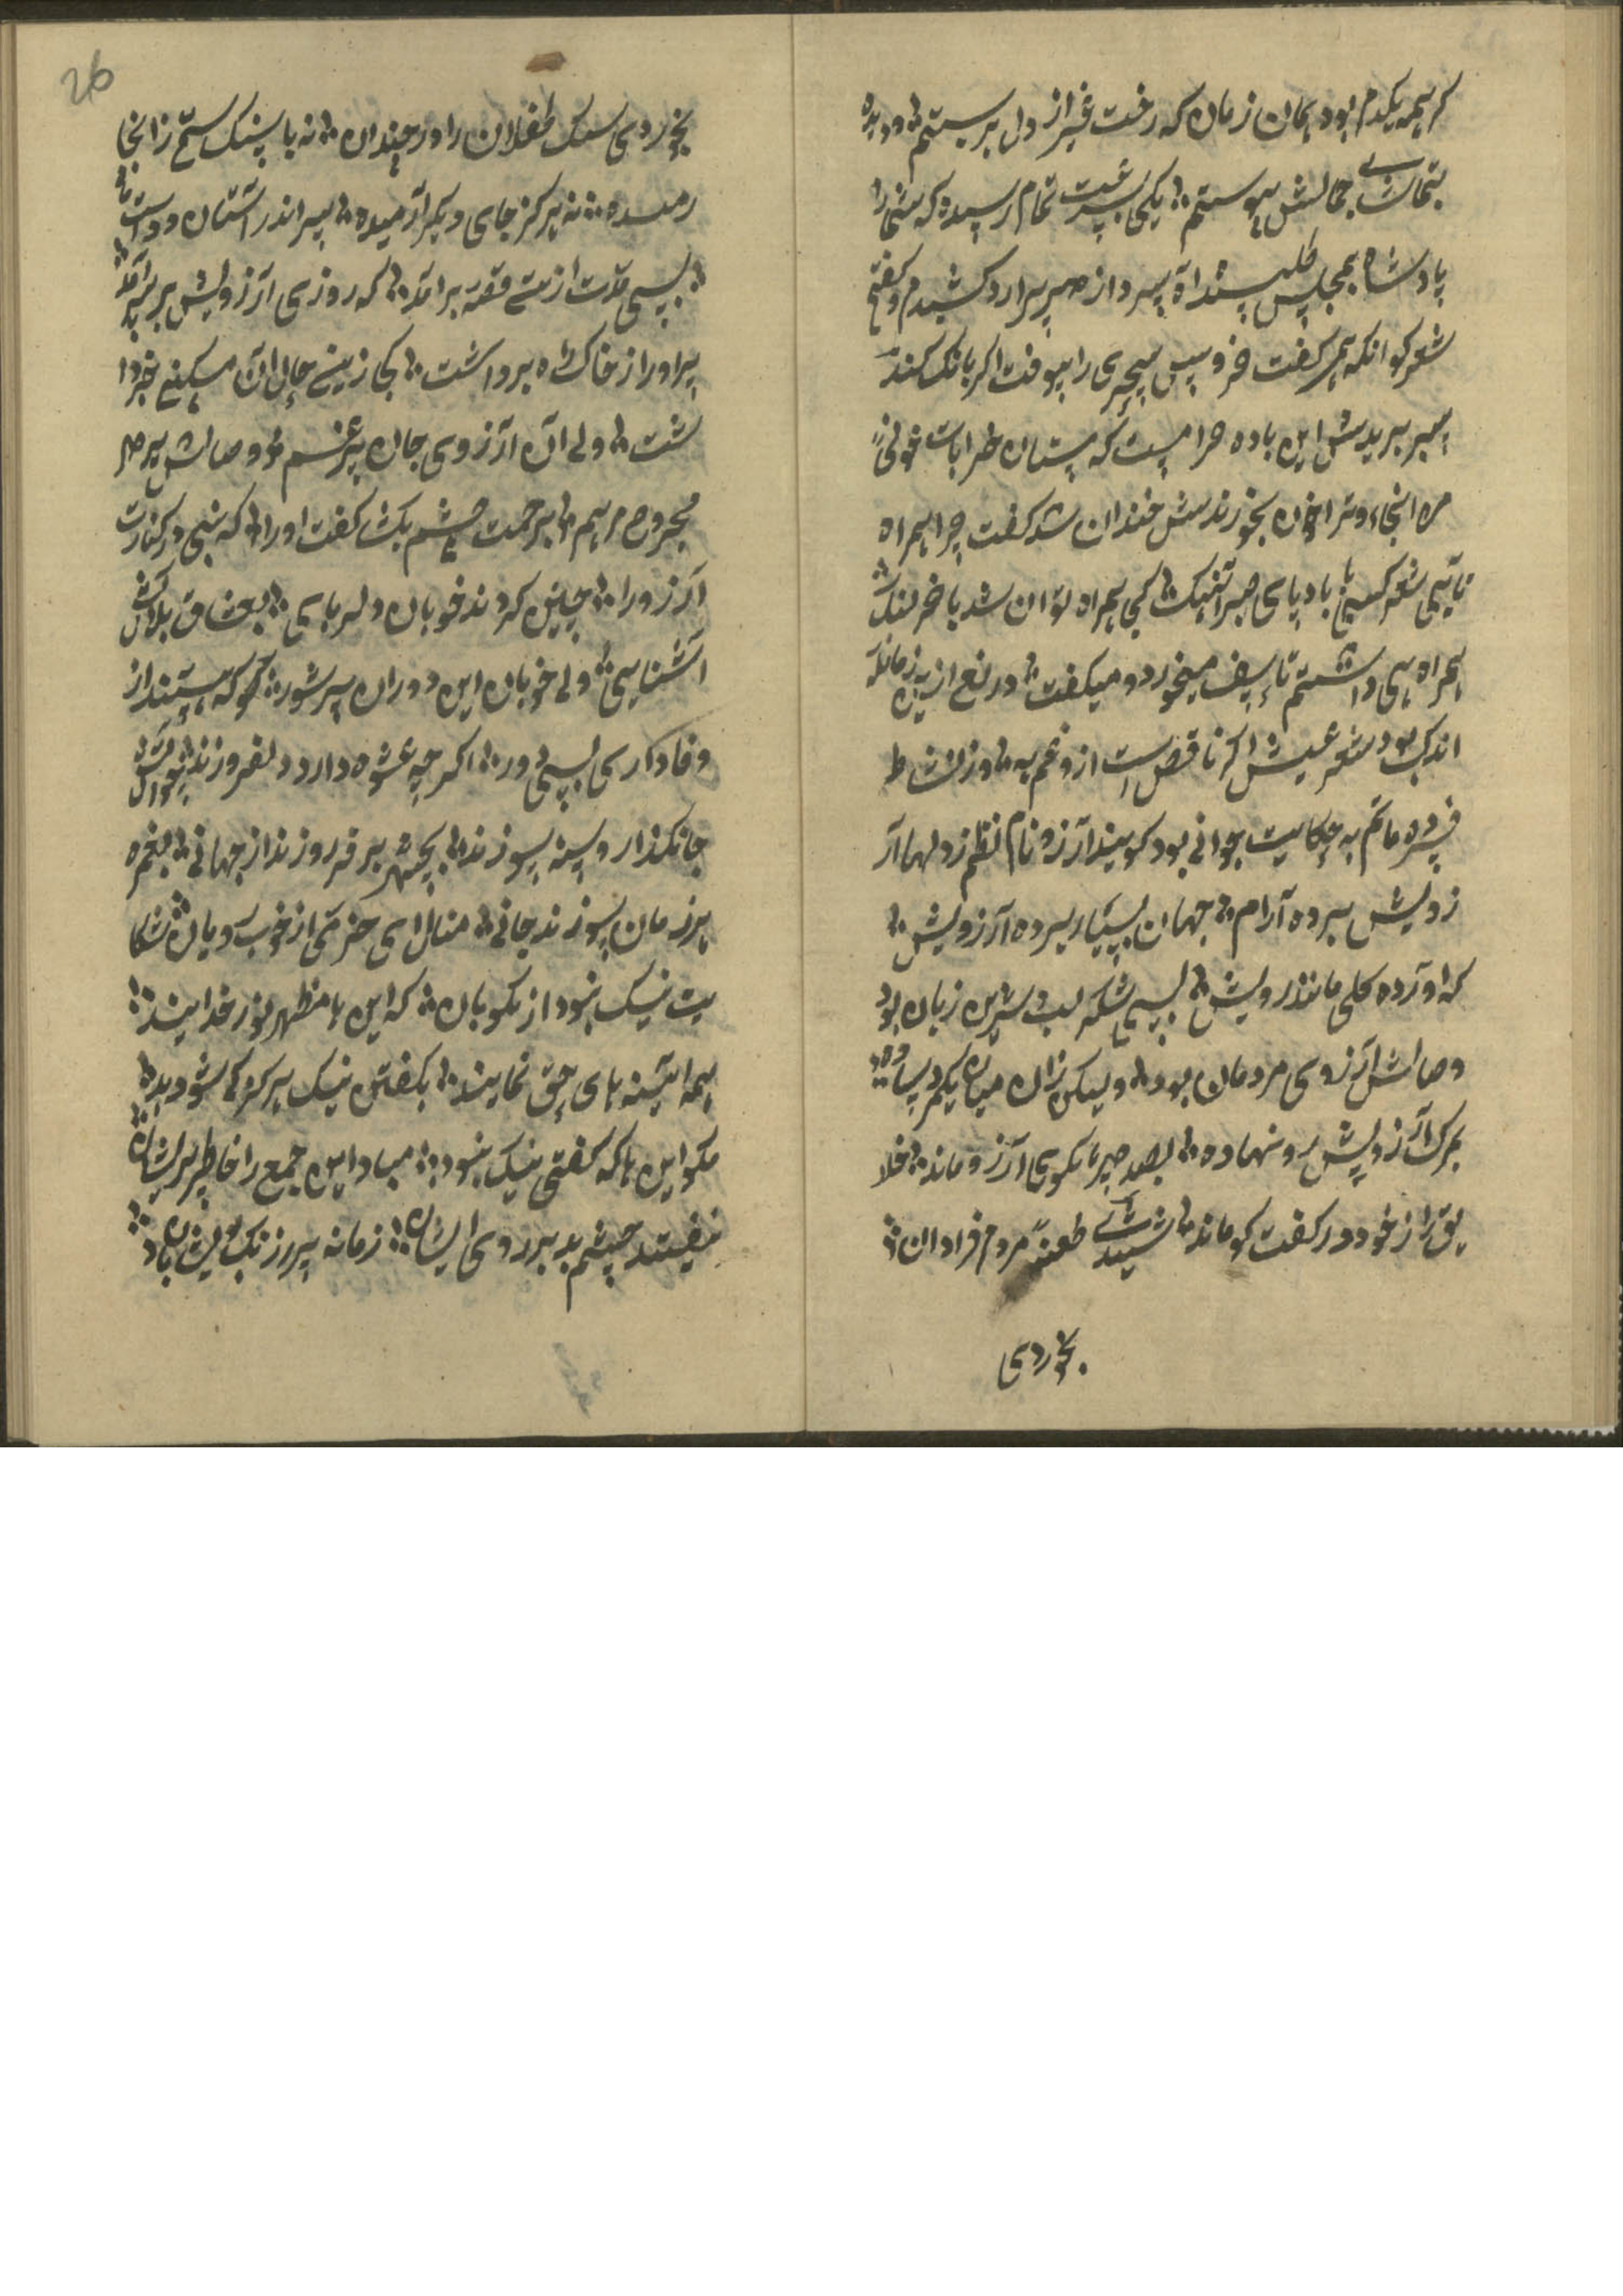 کر همه یکدم بود همان زمان که رخت غیر از دل بر بستم و دیده
بتماشای جمالش پیوستم یکی بسرعت تمام رسیده که شما را
پادشاه بمجلس طلبیدند آه سرد از صبر برارد کشیدم و گفتم
شعر کو انکه همی کفت خروس سحری را بیوقت اکر بانک کند
سر ببریدش این باده حرامیست که مستان خرابات خونی
من اینجا و ترا خان بخوزندش خندان شد کفت چرا همراه
نآیی شعر کسی با باد پای صبر آتنیک کی همراه توان شد با خر لنک
همراهی داشتم تاسف میخورد و میکفت دریغ از این زمانکه
اندک بود شعر عیش اکر ناقص است ازو غم به وز نشاط
فسرده ماتم به حکایت جوانی بود کویند آرزو نام نظم ز دلها آر
زویش برده آرام جهان بسیار برده آرزویش
که آورده کلی مانند رویش بسی شکر لب و شیرین زبان بود
وصالش آرزوی مردمان بود ولیکن زان میان یکمرد ساده
بمرک آرزویش رو نهاده بصد جبر با کوی آرزو ماند خلا
یق را ز خود دور کفت کو ماند شنیدی طعنهٔ مردم فراوان
بخوردی
26
بخوردی سنک طفلان را دو چندان نه با سنک ستم ز انجا
رمیده نه هرکز جای دیکر آرمیده سر اندر آستان دوست
بسی مدت ازین قصه برآمد که روزی آرزویش بر سر آمد
سر او را از خاک راه برداشت کجا زینسان حال آن مسکین خبر دا
شت ولی آن آرزوی جان پر غم وصالش بر دل
مجروح مرهم برحمت چشم بکشا کفت او را که بینی در کنارت
آرزو را چنین کردند خوبان دلربایی بعشاق بلاکش
آشنایی ولی خوبان این دوران پر شور مکو که هستند از
وفاداری بسی دور اکر چه عشوه دارد دلفروزند
جانکداز و سینه سوزند بچهره بر فروزند از جهانی بغمزه
هر زمان سوزند جانی منال ای خرمی از خوبرویان شکا
یت نیک نبود از نکویان که این ها مظهر نور خدایند
همه آیینه های حق نمایند بکفتن نیک هرکز کی شود بد
مکو این ها که کفتی نیک نبود مبادا این جمع را خاطر پریشان
نیفتد چشم بد بر روی ایشان زمانه پر ز رنک و بویشان باد